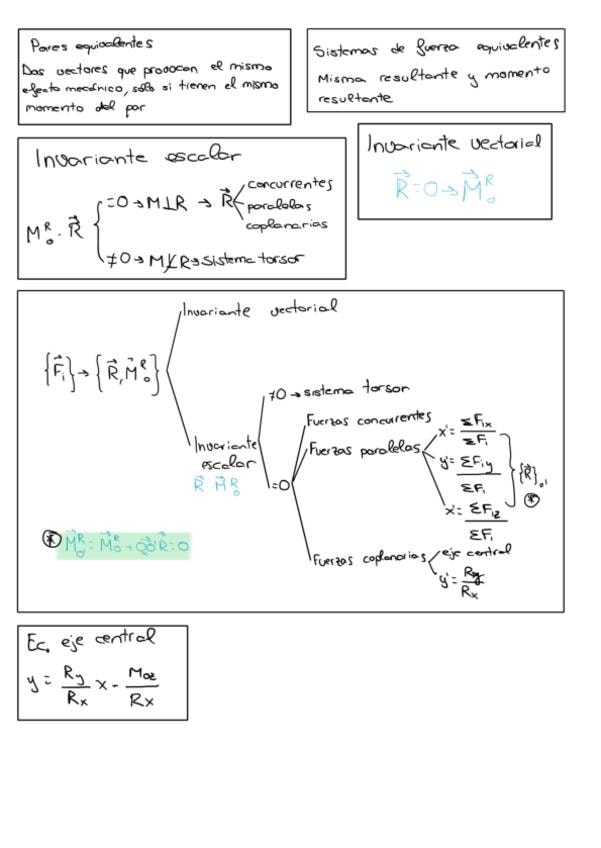 Pares equivalentes
Dos vectores que provocan el mismo
efecto mecánico, sólo si tienen el mismo
momento del par
Sistemas de fuerza equivalentes
Misma resultante y momento
resultante
Invariante escalar
M₀ᴿ · R⃗
=0 → M⊥R → R⃗
concurrentes
paralelas
coplanarias
≠0 → M⊥̸R → Sistema torsor
Invariante vectorial
R⃗ = 0 → M⃗₀ᴿ
{F⃗i} → {R⃗, M⃗₀ᴿ}
Invariante vectorial
Invariante
escalar
R⃗ · M⃗₀ᴿ
≠0 → sistema torsor
=0
Fuerzas concurentes
Fuerzas paralelas
x' = ΣFix / ΣFi
y' = ΣFiy / ΣFi
x' = ΣFiz / ΣFi
{R⃗}₀'
*
Fuerzas coplanarias
eje central
y' = Ry / Rx
* M⃗₀'ᴿ = M⃗₀ᴿ + O'O⃗ R⃗ = 0
Ec. eje central
y = Ry/Rx x - Moz/Rx